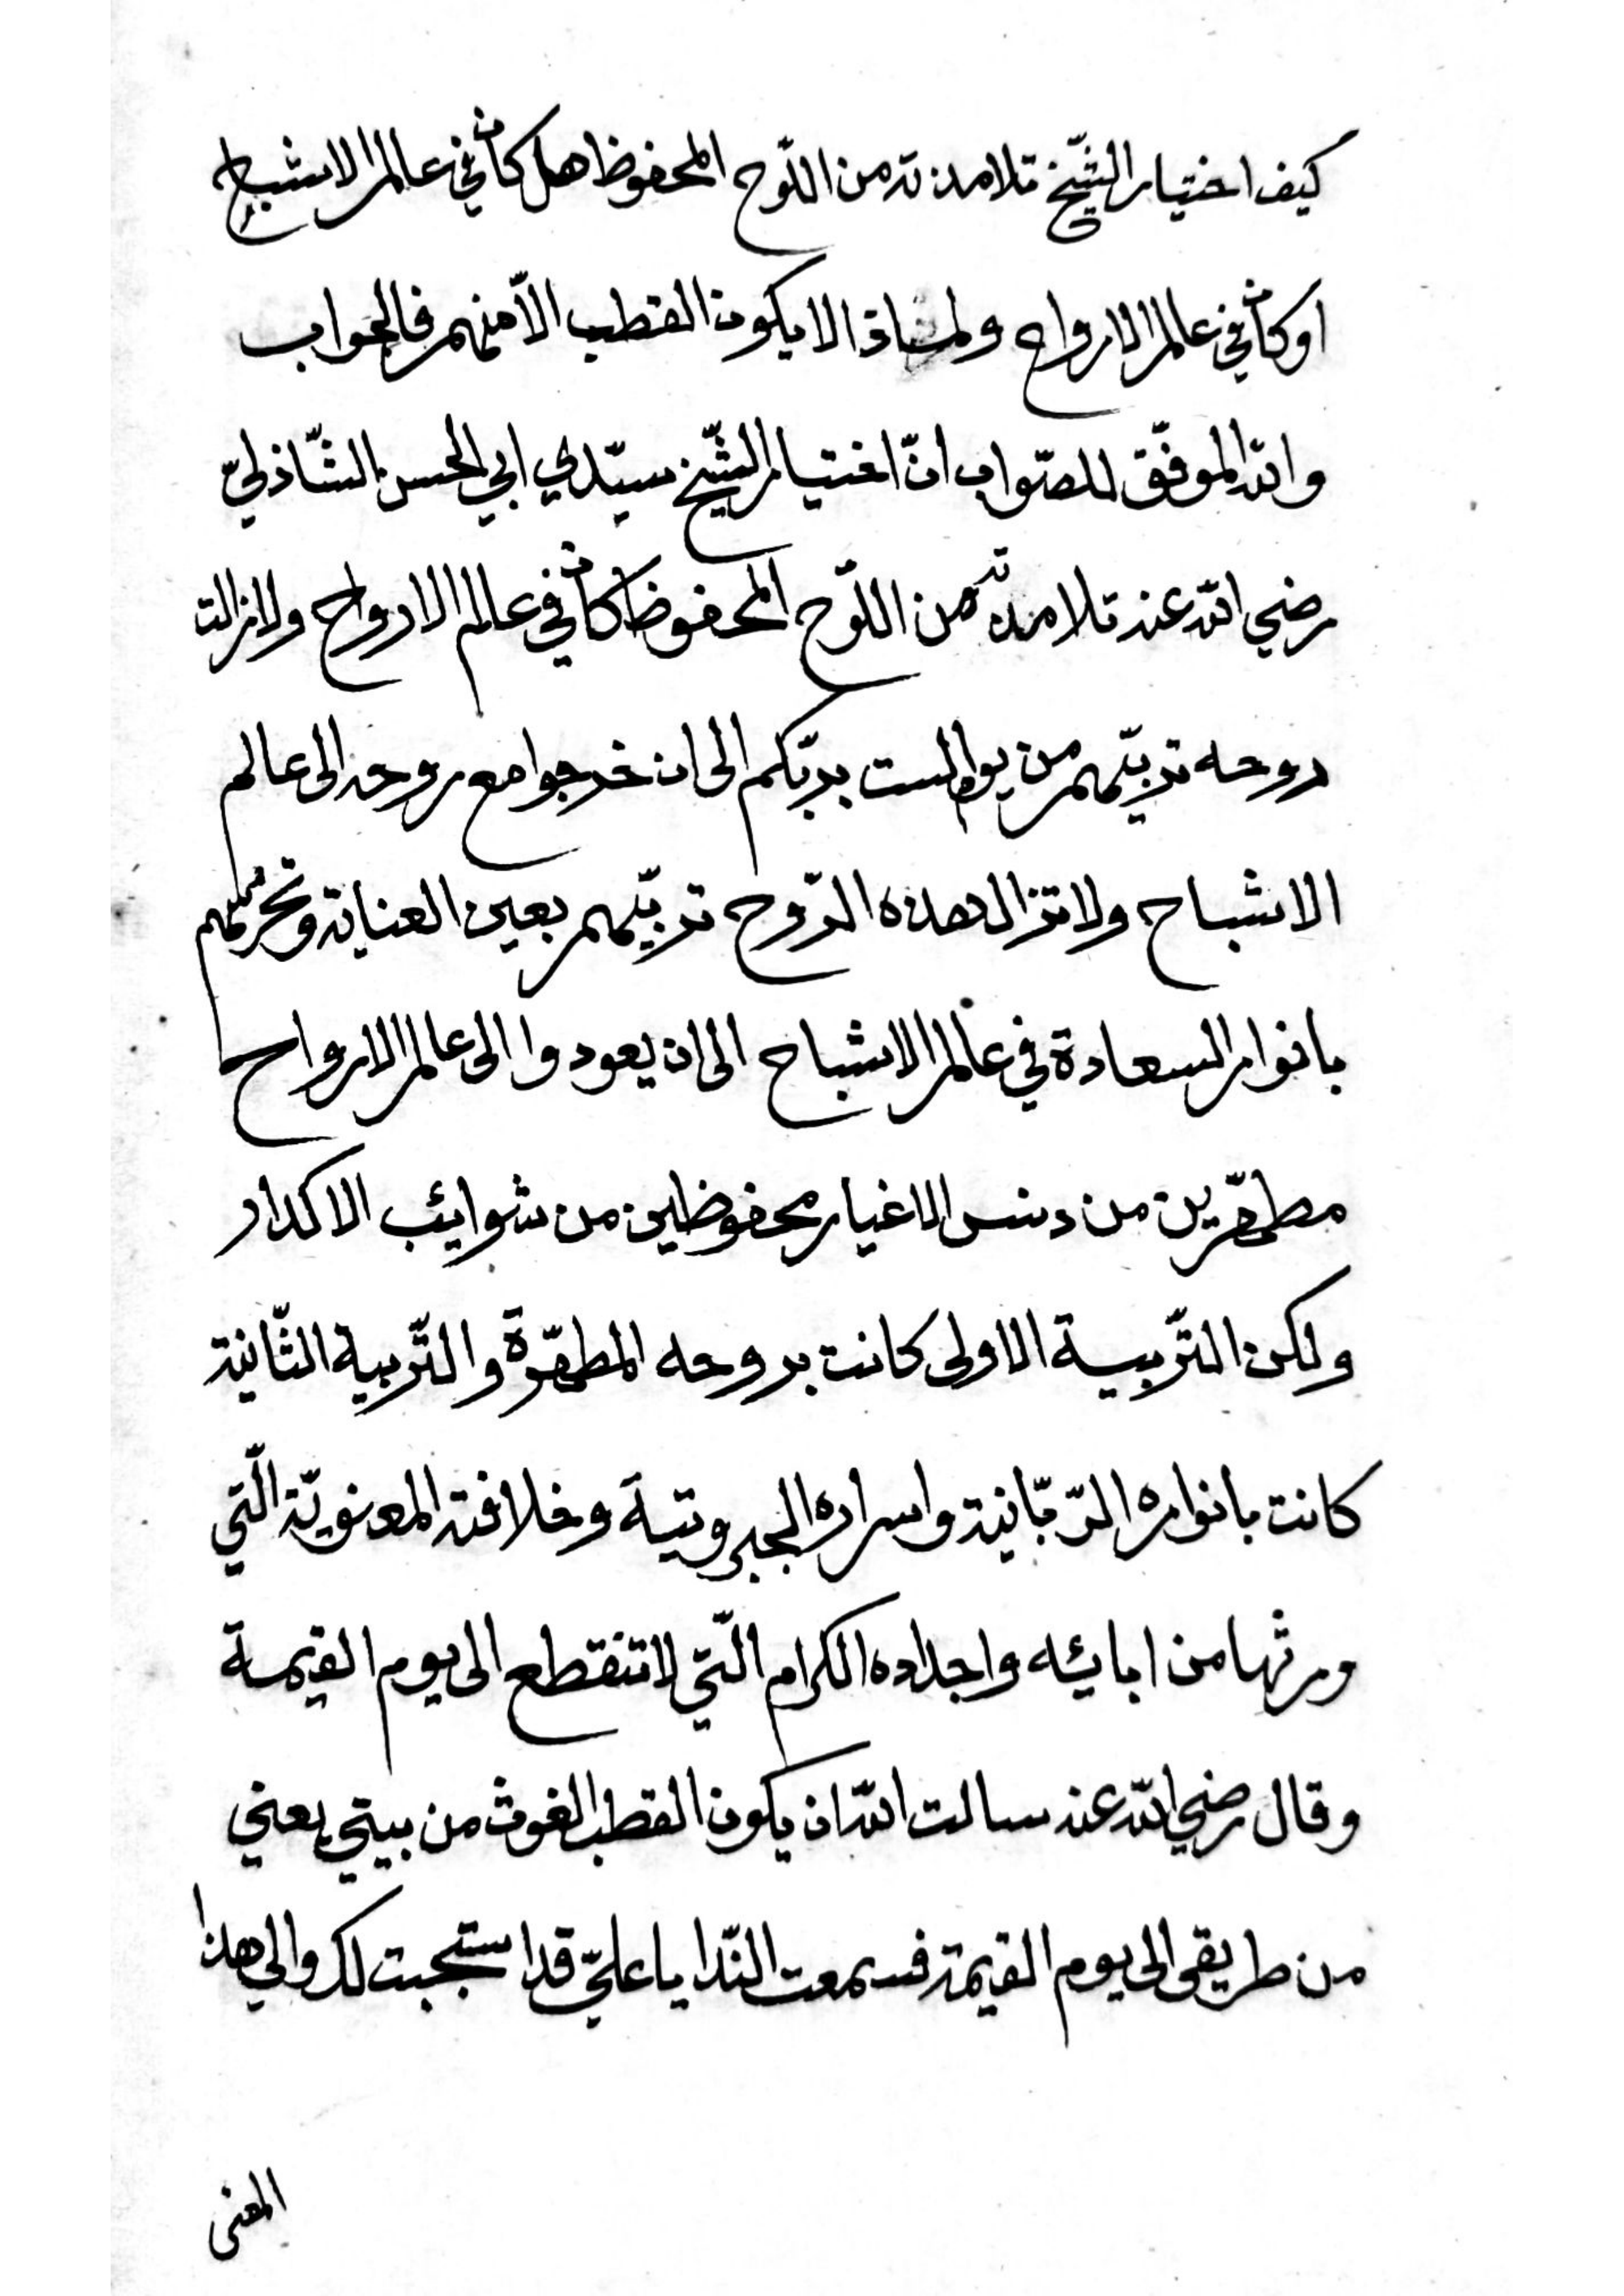 كيف اختيار الشّيخ تلامذته من اللّوح المحفوظ هل كان في عالم الاشباح
او كان في عالم الارواح ولماذا لا يكون القطب الّا منهم فالجواب
والله الموفّق للصّواب انّ اختيار الشّيخ سيّدي ابي الحسن الشّاذليّ
رضي الله عنه تلامذته من اللّوح المحفوظ كان في عالم الارواح ولا زالت
روحه تربّيهم من يوم الست بربّكم الى ان خرجوا مع روحه الى عالم
الاشباح ولا تزال هذه الرّوح تربّيهم بعين العناية وتحرّكهم
بانوار السعادة في عالم الاشباح الى ان يعودوا الى عالم الارواح
مطهّرين من دنس الاغيار محفوظين من شوائب الاكدار
ولكن التّربية الاولى كانت بروحه المطهّرة والتّربية الثّانية
كانت بانواره الرّبّانية واسراره الجبروتية وخلافته المعنويّة الّتي
ورثها من ابائه واجداده الكرام الّتي لا تنقطع الى يوم القيمة
وقال رضي الله عنه سالت الله ان يكون القطب الغوث من بيتي يعني
من طريقى الى يوم القيمة فسمعت النّدا يا عليّ قد استجبت لك والى هذا
المعنى